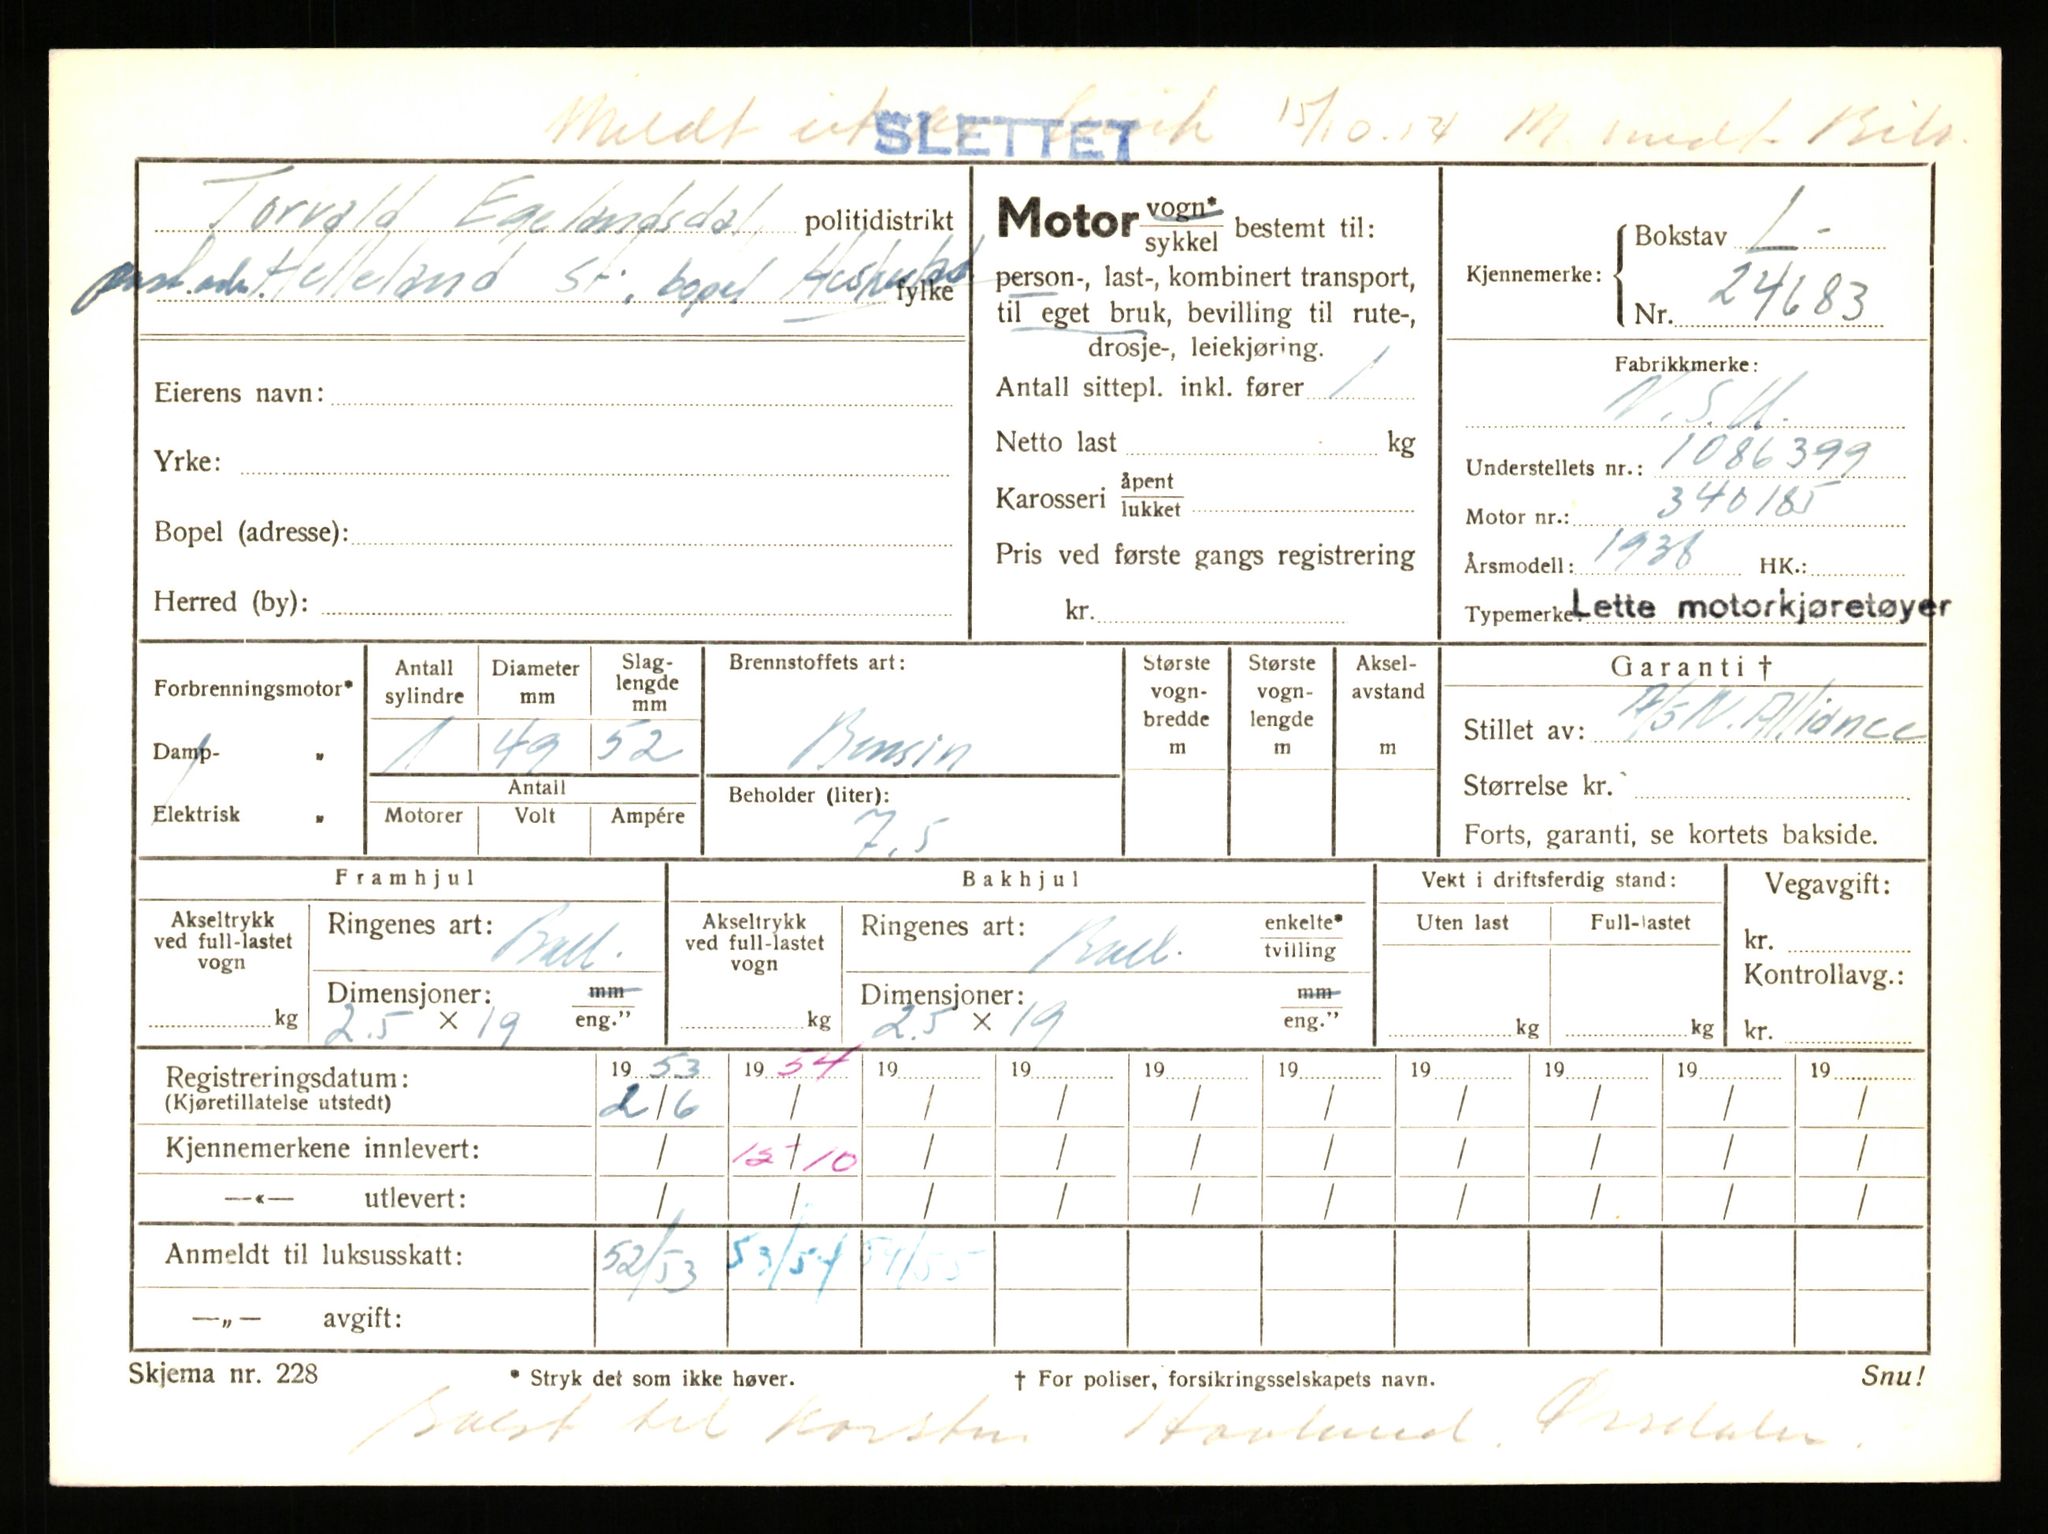 Meldt 15/10.54
SLETTET
Torvald Egelandsdal politidistrikt
post.adr. Helleland St; bopel fylke
Eierens navn:
Yrke:
Bopel (adresse):
Herred (by):
Motor vogn* sykkel bestemt til:
person-, last-, kombinert transport,
til eget bruk, bevilling til rute-,
drosje-, leiekjøring.
Antall sittepl. inkl. fører 1
Netto last kg
Karosseri åpent lukket
Pris ved første gangs registrering
kr.
Kjennemerke: Bokstav L-
Nr. 24683
Fabrikkmerke:
N.S.U.
Understellets nr.: 1086399
Motor nr.: 340185
Årsmodell: 1938 HK.:
Typemerke: Lette motorkjøretøyer
Forbrenningsmotor*
Damp- „
Elektrisk „
Antall sylindre Diameter mm Slag-lengde mm
1 49 52
Antall
Motorer Volt Ampére
Brennstoffets art:
Bensin
Beholder (liter):
7,5
Største vogn-bredde m
Største vogn-lengde m
Aksel-avstand m
Garanti †
Stillet av: A/S N. Alliance
Størrelse kr.
Forts, garanti, se kortets bakside.
Framhjul
Akseltrykk ved full-lastet vogn
kg
Ringenes art: Ball.
Dimensjoner: mm
2.5 × 19 eng."
Bakhjul
Akseltrykk ved full-lastet vogn
kg
Ringenes art: Ball. enkelte* tvilling
Dimensjoner: mm
2.5 × 19 eng."
Vekt i driftsferdig stand:
Uten last Full-lastet
kg kg
Vegavgift:
kr.
Kontrollavg.:
kr.
Registreringsdatum: 19 53 19 54 19 19 19 19 19 19 19 19
(Kjøretillatelse utstedt) 2/6 / / / / / / / / /
Kjennemerkene innlevert: / 15/10 / / / / / / / /
—«— utlevert: / / / / / / / / / /
Anmeldt til luksusskatt: 52/53 53/54 54/55
—„— avgift:
Skjema nr. 228 * Stryk det som ikke høver. † For poliser, forsikringsselskapets navn. Snu!
Solgt til Karsten Hovlund. Ørsdalen.